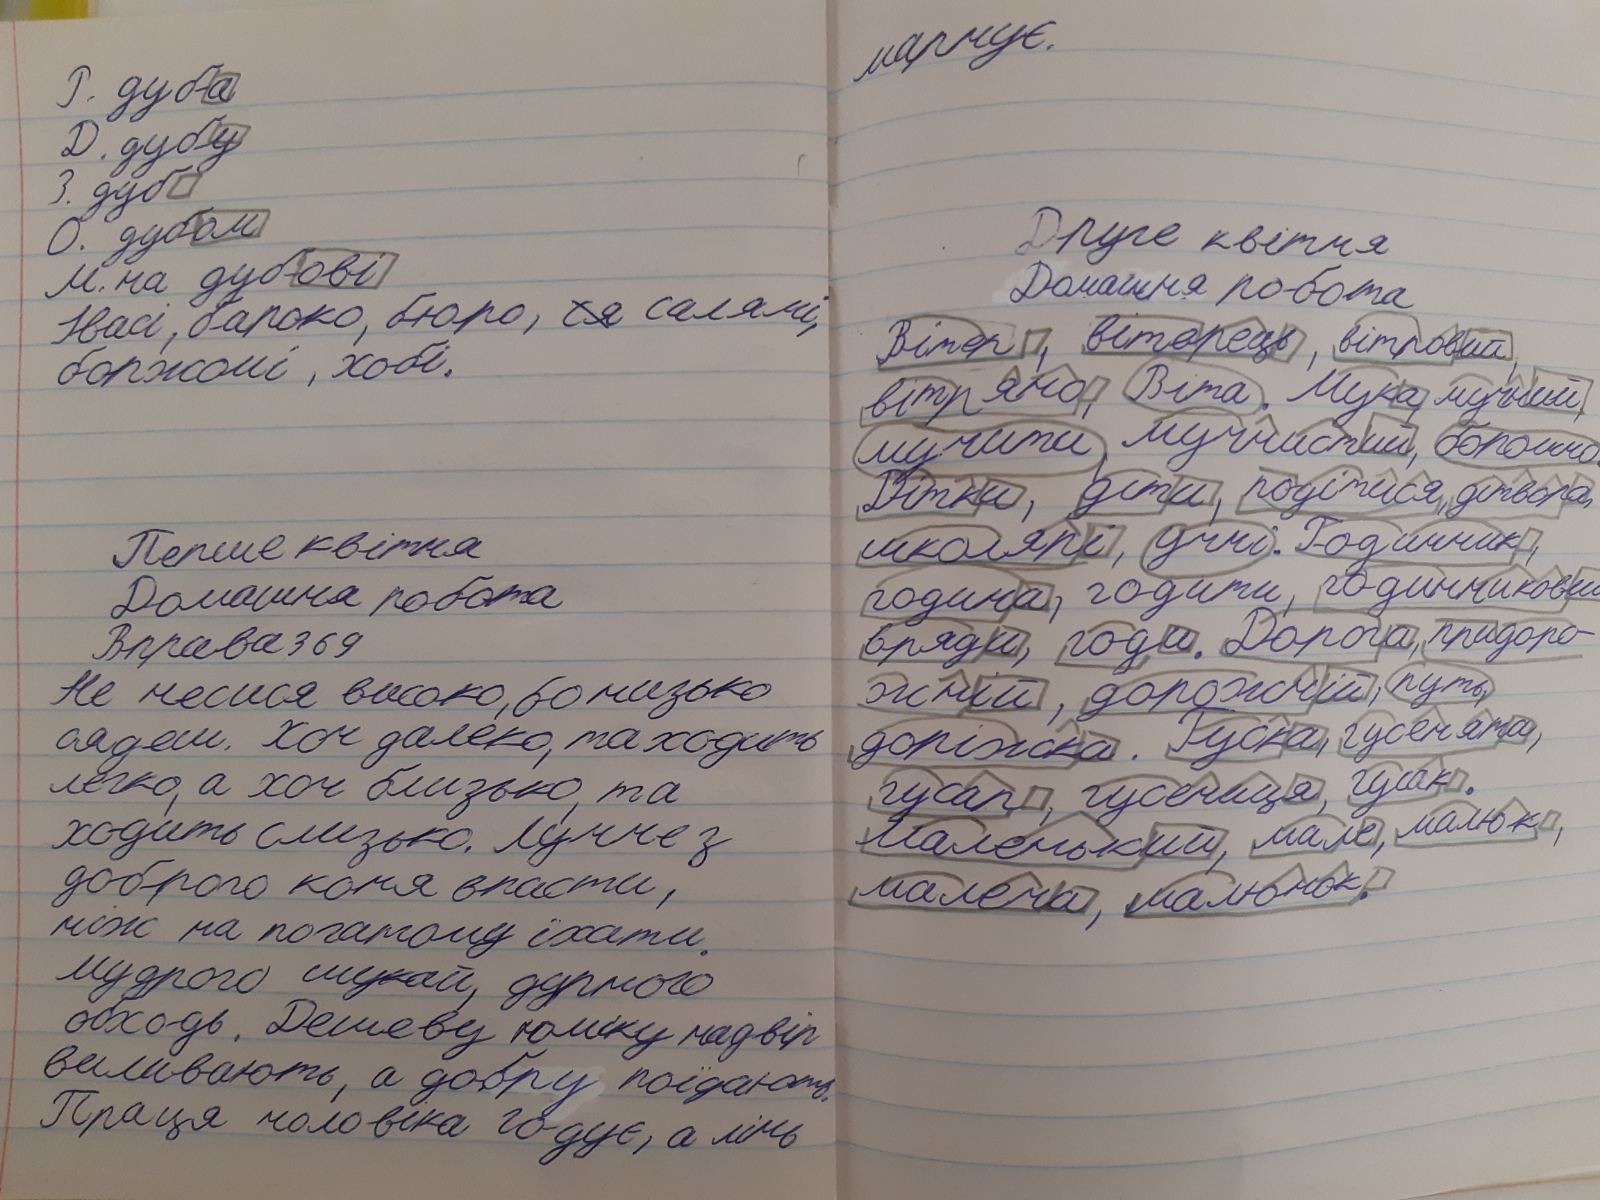 Р. дуба
Д. дубу
З. дуб
О. дубом
М. на дубові
Івасі, бароко, бюро, салямі,
боржомі, хобі.
Перше квітня
Домашня робота
Вправа 369
Не несися високо, бо низько
сядеш. Хоч далеко, та ходить
легко, а хоч близько, та
ходить слизько. Лучче з
доброго коня впасти,
ніж на поганому їхати.
Мудрого шукай, дурного
обходь. Дешеву юшку надвір
виливають, а добру поїдають.
Праця чоловіка годує, а лінь
марнує.
Друге квітня
Домашня робота
Вітер, вітерець, вітровий,
вітряно, Віта. Мука, мучний,
мучити, мучнистий, борошно.
Дітки, діти, подітися, дітвора,
школярі, учні. Годинник,
година, годити, годинниковий
вряди, годи. Дорога, придоро-
жній, дорожній, путь,
доріжка. Гуска, гусенята,
гусар, гусениця, гусак.
Маленький, мале, малюк,
малеча, малюнок.